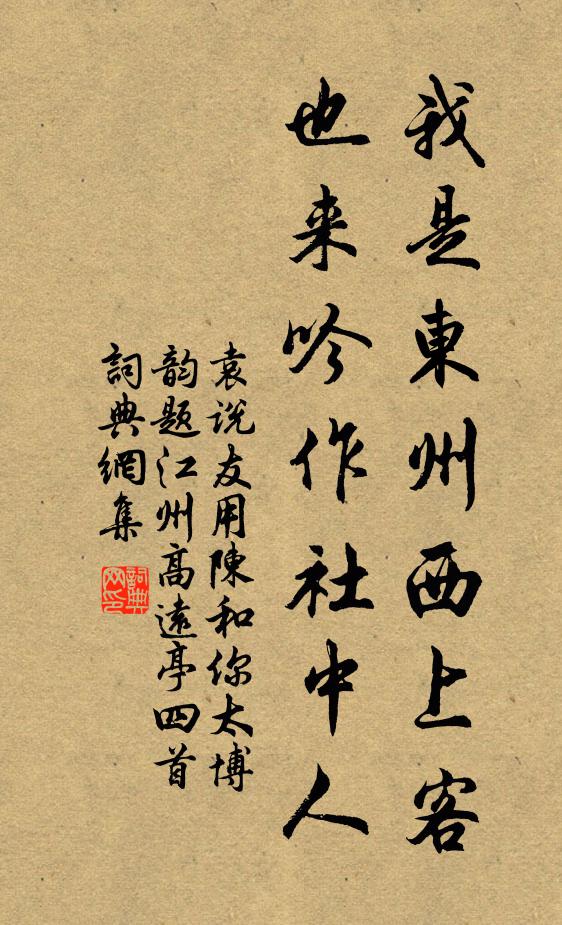 我是東州西上客
也来吟作社中人
袁说友用陳和你太博
韵题江州高遠亭四首
詞典網集
詞典
网印